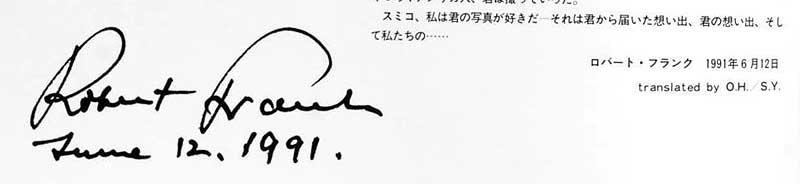 スミコ、私は君の写真が好きだ—それは君から届いた想い出、君の想い出、そし
て私たちの……
ロバート・フランク 1991年6月12日
translated by O.H.／S.Y.
Robert Frank
June 12. 1991.